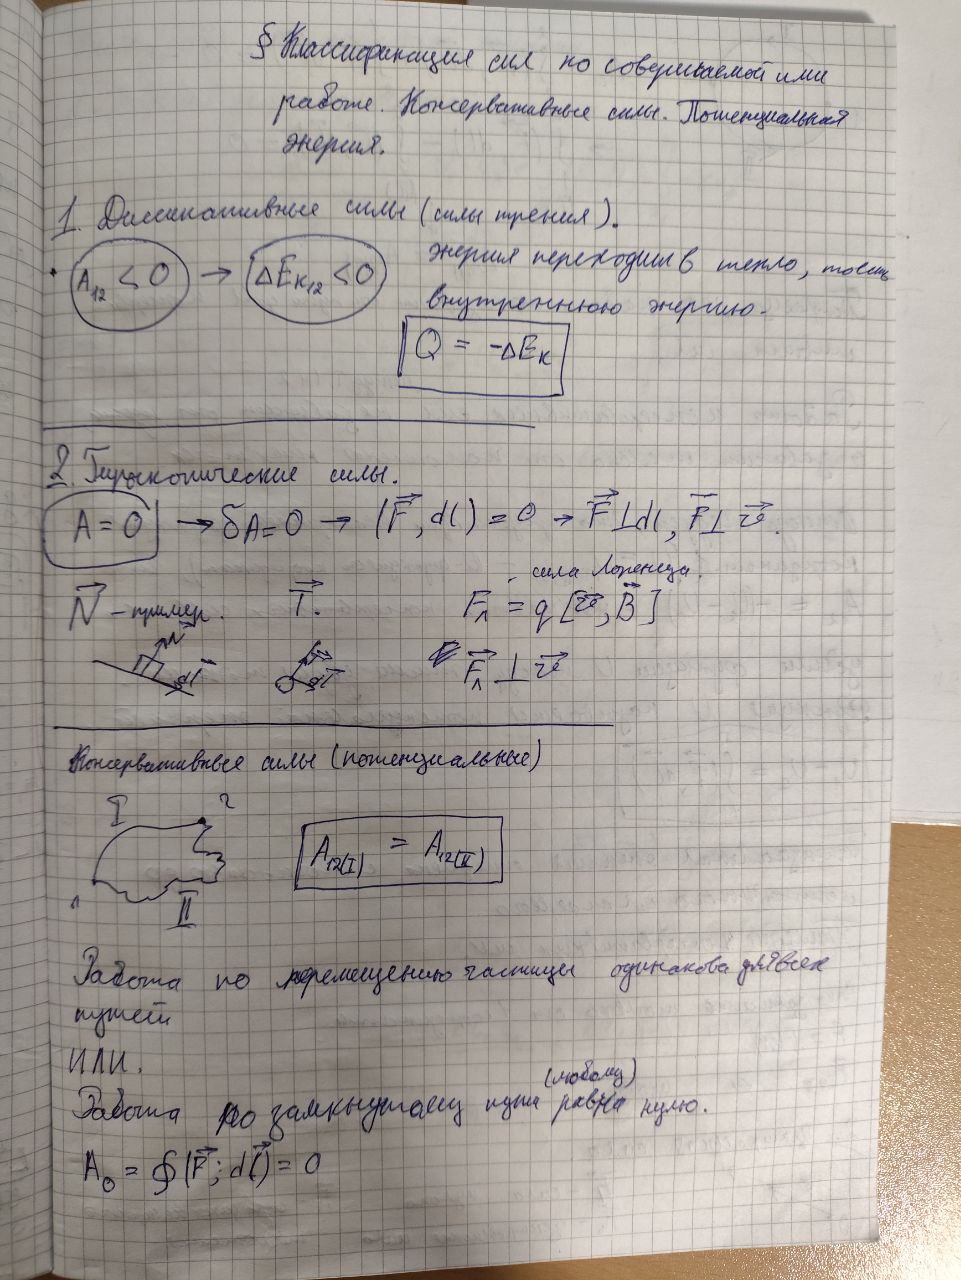 § Классификация сил по совершаемой ими
работе. Консервативные силы. Потенциальная
энергия.
1. Диссипативные силы (силы трения).
A₁₂ < 0 → ΔEк₁₂ < 0
энергия переходит в тепло, то есть
внутреннюю энергию.
Q = -ΔEк
2. Гироскопические силы.
A = 0 → δA = 0 → (F⃗, dl) = 0 → F⃗ ⊥ dl, F⃗ ⊥ v⃗.
сила Лоренца.
N⃗ - пример. T⃗. Fл = q [v⃗, B⃗]
N⃗ dl⃗ dl⃗ F⃗л ⊥ v⃗
Консервативные силы (потенциальные)
I 2
A₁₂(I) = A₁₂(II)
1 II
Работа по перемещению частицы одинакова для всех
путей
ИЛИ.
(любому)
Работа по замкнутому пути равна нулю.
A₀ = ∮(F⃗; dl⃗) = 0